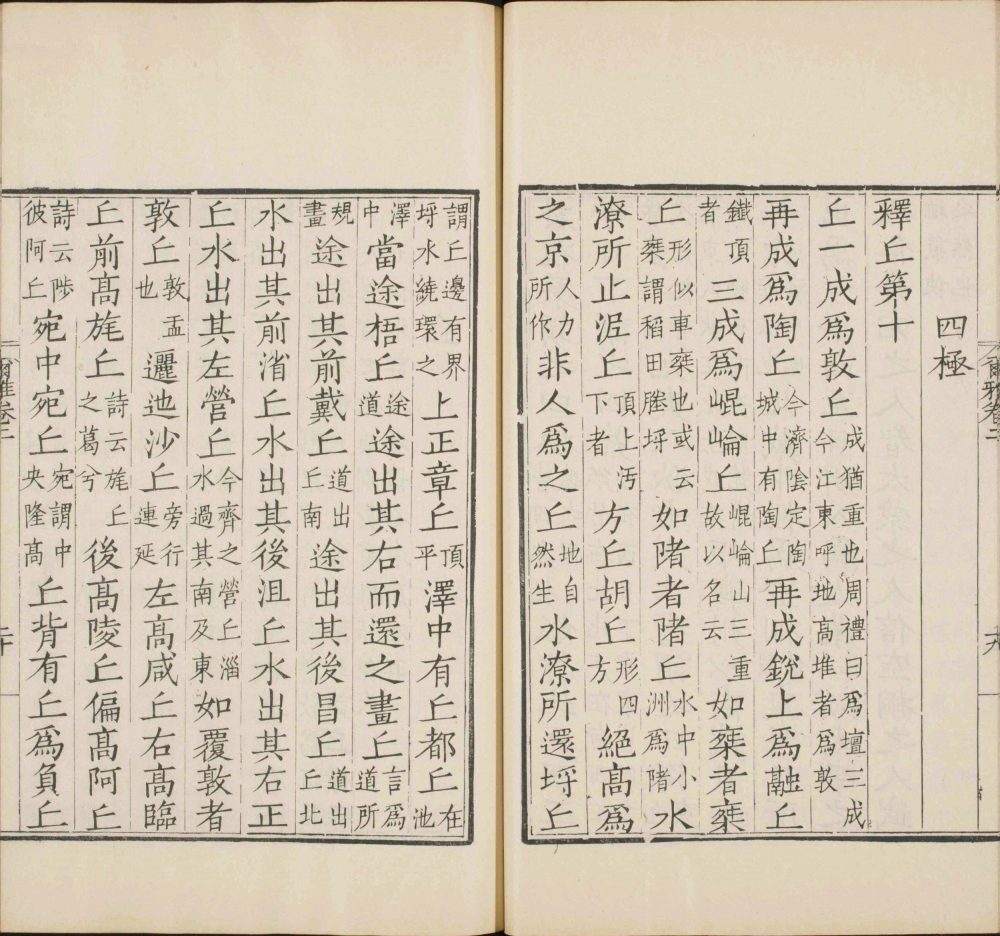 四極
釋丘第十
丘一成爲敦丘成猶重也周禮曰爲壇三成今江東呼地高堆者爲敦
再成爲陶丘今濟陰定陶城中有陶丘再成銳上爲融丘
鑯頂者三成爲崐崘丘崐崘山三重故以名云如椉者椉
丘形似車椉也或云椉謂稻田塍埒如陼者陼丘水中小洲爲陼水
潦所止泥丘頂上汚下者方丘胡丘形四方絕高爲
之京人力所作非人爲之丘地自然生水潦所還埒丘
謂丘邊有界埒水繞環之上正章丘頂平澤中有丘都丘在池
澤中當途梧丘途道途出其右而還之畫丘言爲道所
規畫途出其前戴丘道出丘南途出其後昌丘道出丘北
水出其前渻丘水出其後沮丘水出其右正
丘水出其左營丘今齊之營丘淄水過其南及東如覆敦者
敦丘敦盂也邐迆沙丘旁行連延左高咸丘右高臨
丘前高旄丘詩云旄丘之葛兮後高陵丘偏高阿丘
詩云陟彼阿丘宛中宛丘宛謂中央隆高丘背有丘爲負丘